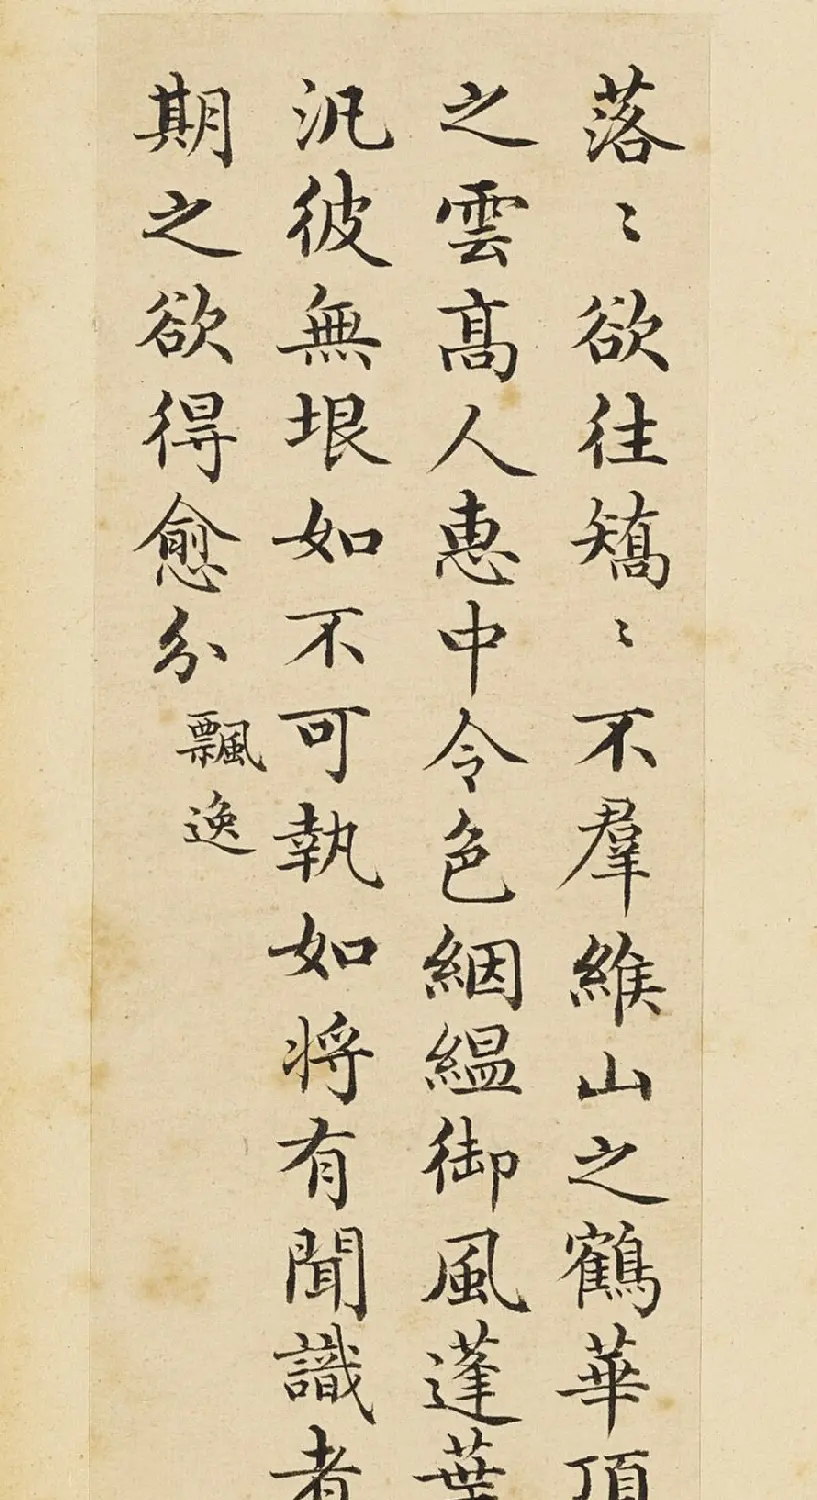 落〻欲往矯〻不羣緱山之鶴華頂
之雲高人惠中令色絪緼御風蓬葉
汎彼無垠如不可執如將有聞識者
期之欲得愈分
飄逸